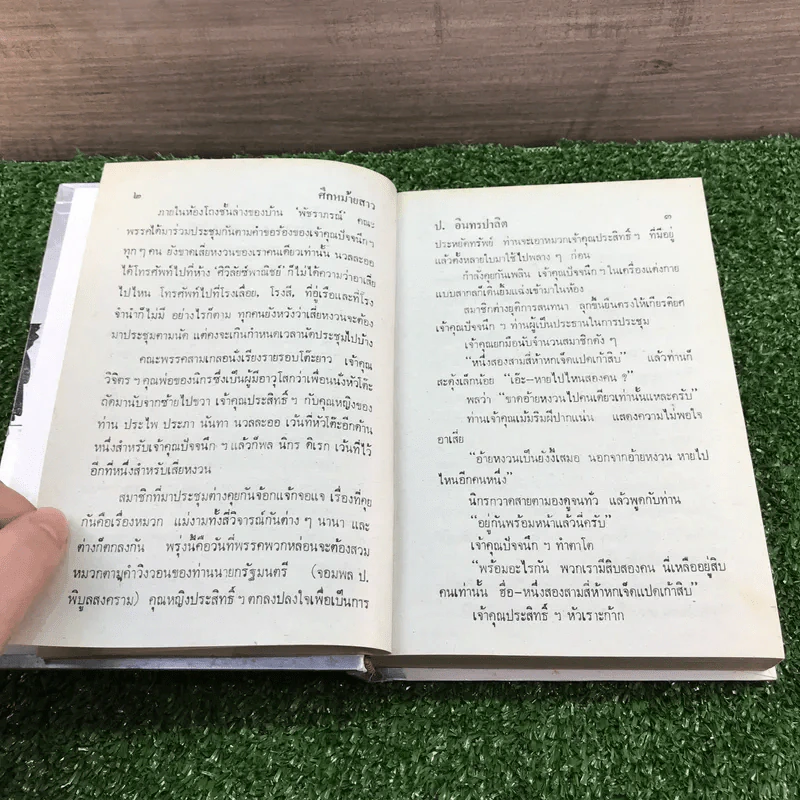 ๒ ศึกหม้ายสาว
ภายในห้องโถงชั้นล่างของบ้าน 'พัชราภรณ์' คณะ
พรรคได้มาร่วมประชุมกันตามคำขอร้องของเจ้าคุณปัจจนึก ฯ
ทุก ๆ คน ยังขาดเสี่ยหงวนของเราคนเดียวเท่านั้น นวลละออ
ได้โทรศัพท์ไปที่ห้าง 'ศิวิลัยซ์พาณิชย์' ก็ไม่ได้ความว่าอาเสี่ย
ไปไหน โทรศัพท์ไปที่โรงเลื่อย, โรงสี, ที่อู่เรือและที่โรง
จำนำก็ไม่มี อย่างไรก็ตาม ทุกคนยังหวังว่าเสี่ยหงวนจะต้อง
มาประชุมตามนัด แต่คงจะเกินกำหนดเวลานัดประชุมไปบ้าง
คณะพรรคสามเกลอนั่งเรียงรายรอบโต๊ะยาว เจ้าคุณ
วิจิตร ฯ คุณพ่อของนิกรซึ่งเป็นผู้มีอาวุโสกว่าเพื่อนนั่งหัวโต๊ะ
ถัดมานับจากซ้ายไปขวา เจ้าคุณประสิทธิ์ ฯ กับคุณหญิงของ
ท่าน ประไพ ประภา นันทา นวลละออ เว้นที่หัวโต๊ะอีกด้าน
หนึ่งสำหรับเจ้าคุณปัจจนึก ฯ แล้วก็พล นิกร ดิเรก เว้นที่ไว้
อีกที่หนึ่งสำหรับเสี่ยหงวน
สมาชิกที่มาประชุมต่างคุยกันจ้อกแจ้กจอแจ เรื่องที่คุย
กันคือเรื่องหมวก แม่งามทั้งสี่วิจารณ์กันต่าง ๆ นานา และ
ต่างก็ตกลงกัน พรุ่งนี้คือวันที่พรรคพวกหล่อนจะต้องสวม
หมวกตามคำวิงวอนของท่านนายกรัฐมนตรี (จอมพล ป.
พิบูลสงคราม) คุณหญิงประสิทธิ์ ฯ ตกลงปลงใจเพื่อเป็นการ
ป. อินทรปาลิต ๓
ประหยัดทรัพย์ ท่านจะเอาหมวกเจ้าคุณประสิทธิ์ ฯ ที่มีอยู่
แล้วตั้งหลายใบมาใช้ไปพลาง ๆ ก่อน
กำลังคุยกันเพลิน เจ้าคุณปัจจนึก ฯ ในเครื่องแต่งกาย
แบบสากลก็เดินยิ้มแฉ่งเข้ามาในห้อง
สมาชิกต่างยุติการสนทนา ลุกขึ้นยืนตรงให้เกียรติยศ
เจ้าคุณปัจจนึก ฯ ท่านผู้เป็นประธานในการประชุม
เจ้าคุณยกมือนับจำนวนสมาชิกดัง ๆ
"หนึ่งสองสามสี่ห้าหกเจ็ดแปดเก้าสิบ" แล้วท่านก็
สะดุ้งเล็กน้อย "เอ๊ะ-หายไปไหนสองคน ?"
พลว่า "ขาดอ้ายหงวนไปคนเดียวเท่านั้นแหละครับ"
ท่านเจ้าคุณเม้มริมฝีปากแน่น แสดงความไม่พอใจ
อาเสี่ย
"อ้ายหงวนเป็นยังงี้เสมอ นอกจากอ้ายหงวน หายไป
ไหนอีกคนหนึ่ง"
นิกรกวาดสายตามองดูจนทั่ว แล้วพูดกับท่าน
"อยู่กันพร้อมหน้าแล้วนี่ครับ"
เจ้าคุณปัจจนึก ฯ ทำตาโต
"พร้อมอะไรกัน พวกเรามีสิบสองคน นี่เหลืออยู่สิบ
คนเท่านั้น ฮื่อ-หนึ่งสองสามสี่ห้าหกเจ็ดแปดเก้าสิบ"
เจ้าคุณประสิทธิ์ ฯ หัวเราะก้าก